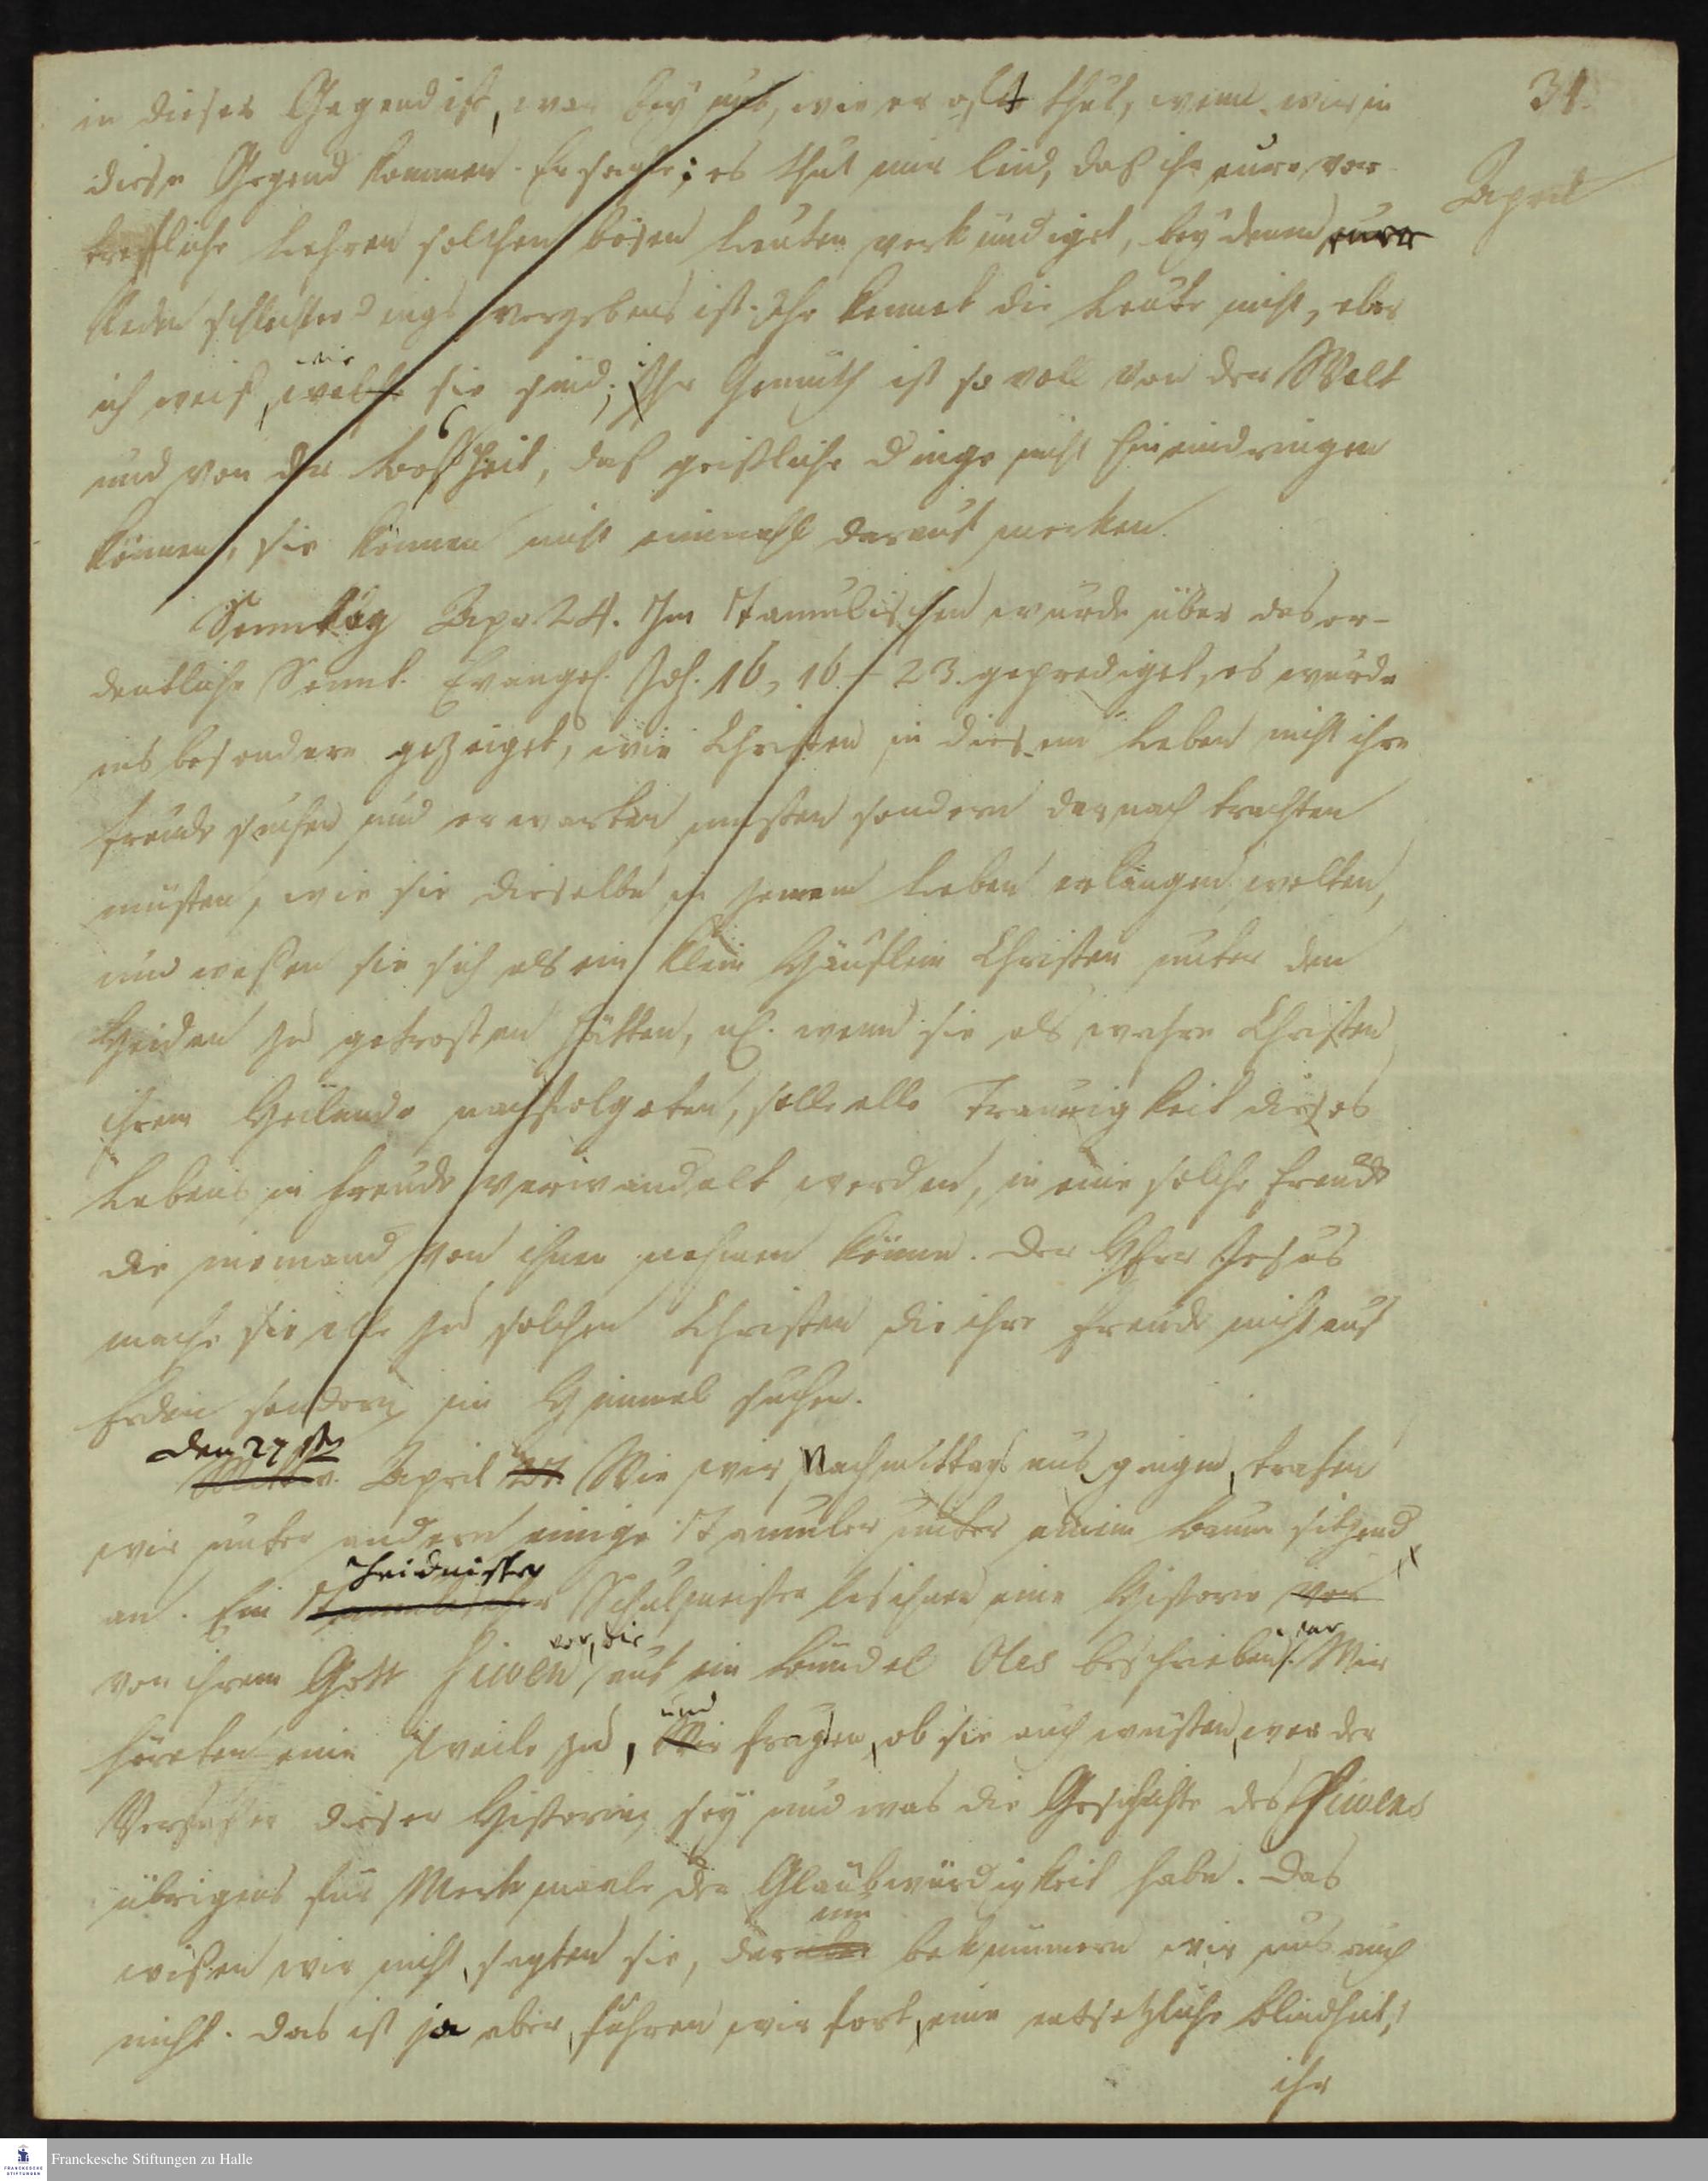 31.
April
in dieser Gegend ist, war bey uns, wie er oft thut, wenn wir in
diese Gegend kommen. Er sagte; es thut mir leid, daß ihr eure vor
trefliche Lehren solchen bösen Leuten verkündiget, bey denen eure
Reden schlechterdings vergebens ist. Ihr kennet die Leute nicht, aber
wie
ich weiß, welche sie sind; Ihr Gemüth ist so voll von der Welt
und von der Boßheit, daß geistliche Dinge nicht hineindringen
können, sie können nicht einmahl darauf merken.
Sonntag Apr. 24. Im Tamulischen wurde über das or-
dentliche Sonnt. Evangel. Joh. 16, 16 - 23. geprediget, es wurde
ins besondere gezeiget, wie Christen in diesem Leben nicht ihre
Freude suchen und erwarten müsten sondern darnach trachten
müsten, wie sie dieselbe in jenem Leben erlangen wolten,
und weßen sie sich als ein klein Häuflein Christen unter den
Heiden zu getrösten hätten, nl. wenn sie als wahre Christen
ihrem Heilande nachfolgeten, solle alle Traurigkeit dieses
Lebens in Freude verwandelt werden, in eine solche Freude
die niemand von ihnen nehmen könne. Der Herr Jesus
mache sie alle zu solchen Christen die ihre Freude nicht auf
Erden sondern im Himmel suchen.
den 27 sten
Mittw. April 27. Wie wir Nachmittags aus giengen, trafen
wir unter andern einige Tamuler unter einem Baum sitzend
heidnischer
an. Ein Tamulischer Schulmeister las ihnen eine Historie vor
vor, die war
von ihrem Gott Siwen, auf ein Bündel Oles beschrieben. Wir
und
höreten eine Weile zu, Wir fragten, ob sie auch wüsten, wer der
Verfasser dieser Historie sey und was die Geschichte des Siwens
übrigens für Merkmaale der Glaubwürdigkeit habe. Das
um
wißen wir nicht, sagten sie, darüber bekümmern wir uns auch
nicht. Das ist ja aber, fuhren wir fort, eine entsetzliche Blindheit,
ihr
Franckesche Stiftungen zu Halle
FRANCKESCHE
STIFTUNGEN